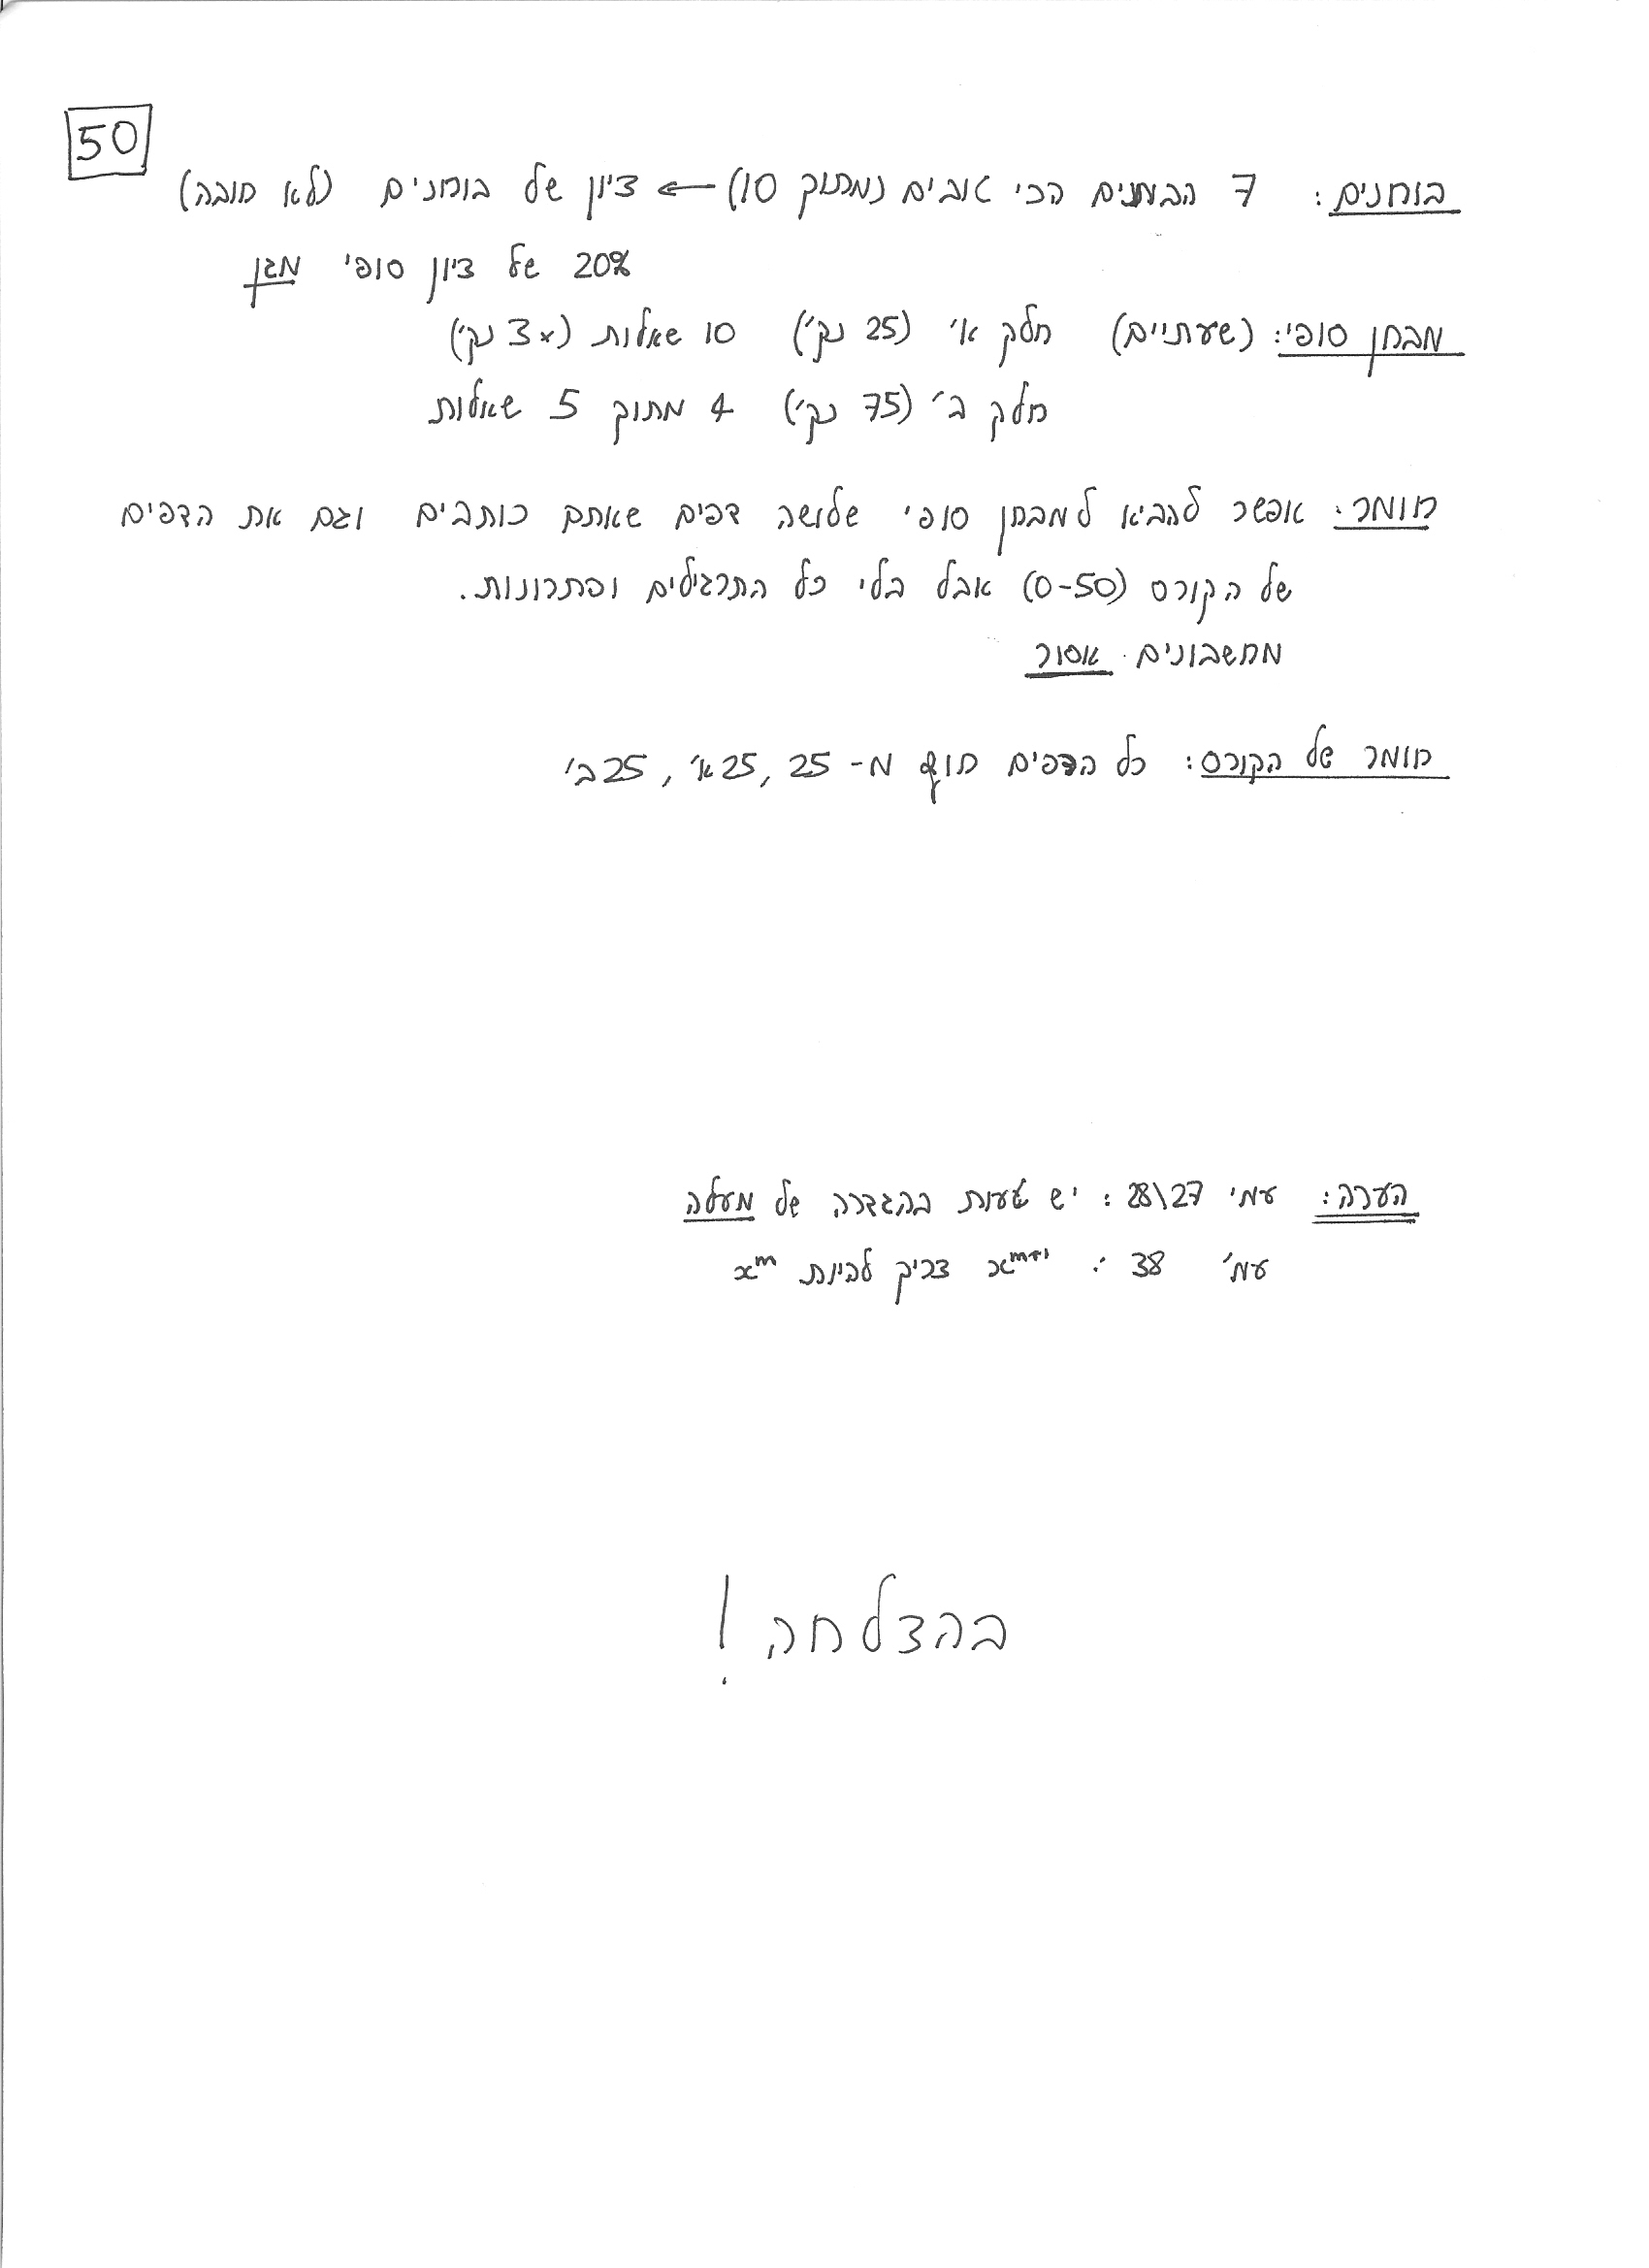 50
בוחנים: 7 הבוחנים הכי טובים (מתוך 10) ← ציון של בוחנים (לא חובה)
20% של ציון סופי מגן
מבחן סופי: (שעתיים) חלק א' (25 נק') 10 שאלות (3× נק')
חלק ב' (75 נק') 4 מתוך 5 שאלות
חומר: אפשר להביא למבחן סופי שלושה דפים שאתם כותבים וגם את הדפים
של הקורס (0-50) אבל בלי כל התרגילים ופתרונות.
מחשבונים אסור
חומר של הקורס: כל הדפים חוץ מ- 25, 25א', 25ב'
הערה: עמ' 28\27: יש טעות בהגדרה של מעלה
עמ' 38: x^{m+1} צריך להיות x^m
בהצלחה!